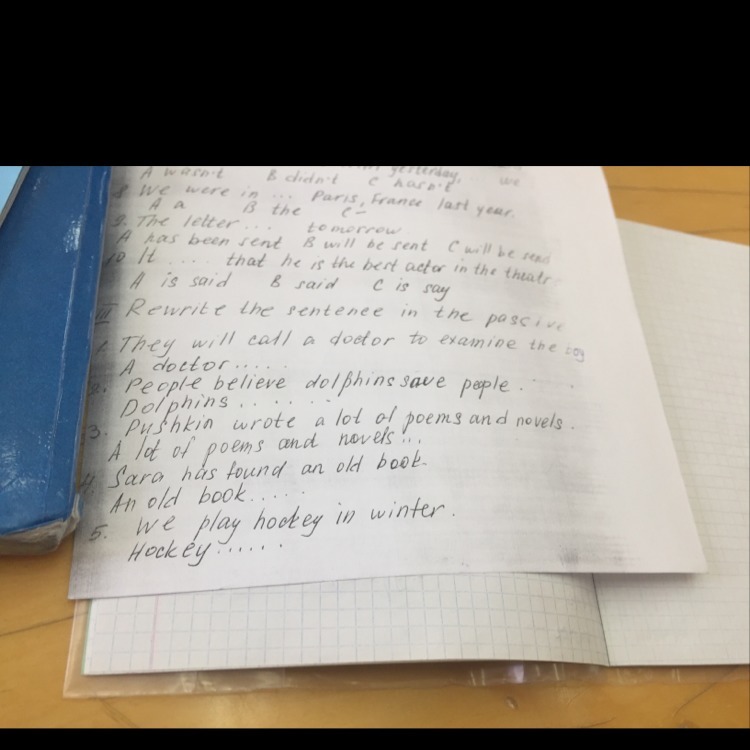 yesterday, .. we
A wasn't B didn't C hasn't
8. We were in ... Paris, France last year.
A a B the C –
9. The letter ... tomorrow
A has been sent B will be sent C will be send
10 It .... that he is the best actor in the theatr
A is said B said C is say
III Rewrite the sentence in the passive
1. They will call a doctor to examine the boy
A doctor.....
2. People believe dolphins save people.
Dolphins.......
3. Pushkin wrote a lot of poems and novels.
A lot of poems and novels...
4. Sara has found an old book.
An old book.....
5. We play hockey in winter.
Hockey......